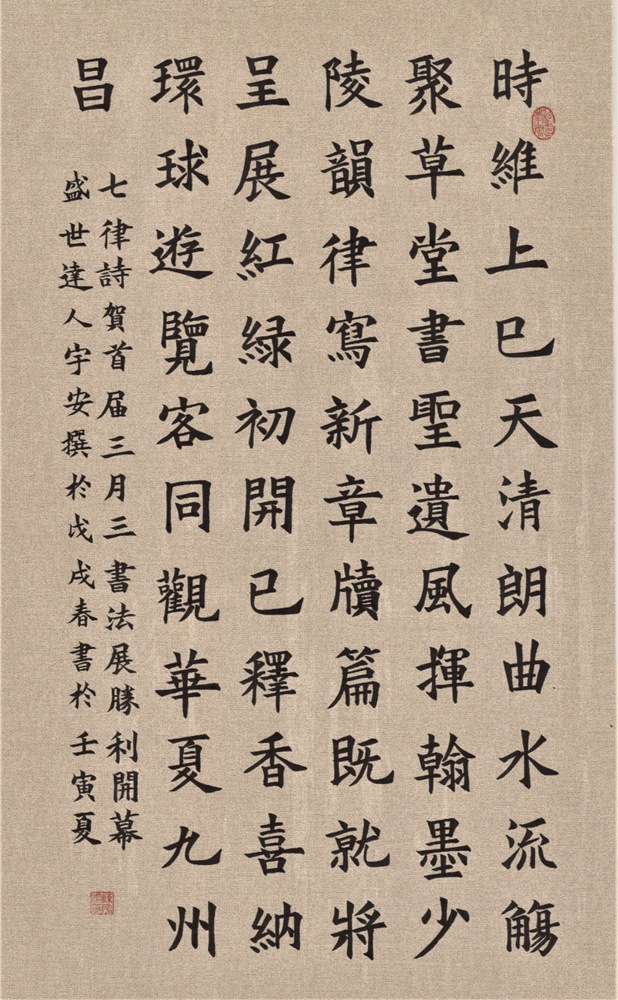 時維上巳天清朗曲水流觴
聚草堂書聖遺風揮翰墨少
陵韻律寫新章牘篇既就將
呈展紅綠初開已釋香喜納
環球遊覽客同觀華夏九州
昌
七律詩賀首届三月三書法展勝利開幕
盛世達人宇安撰於戊戌春書於壬寅夏